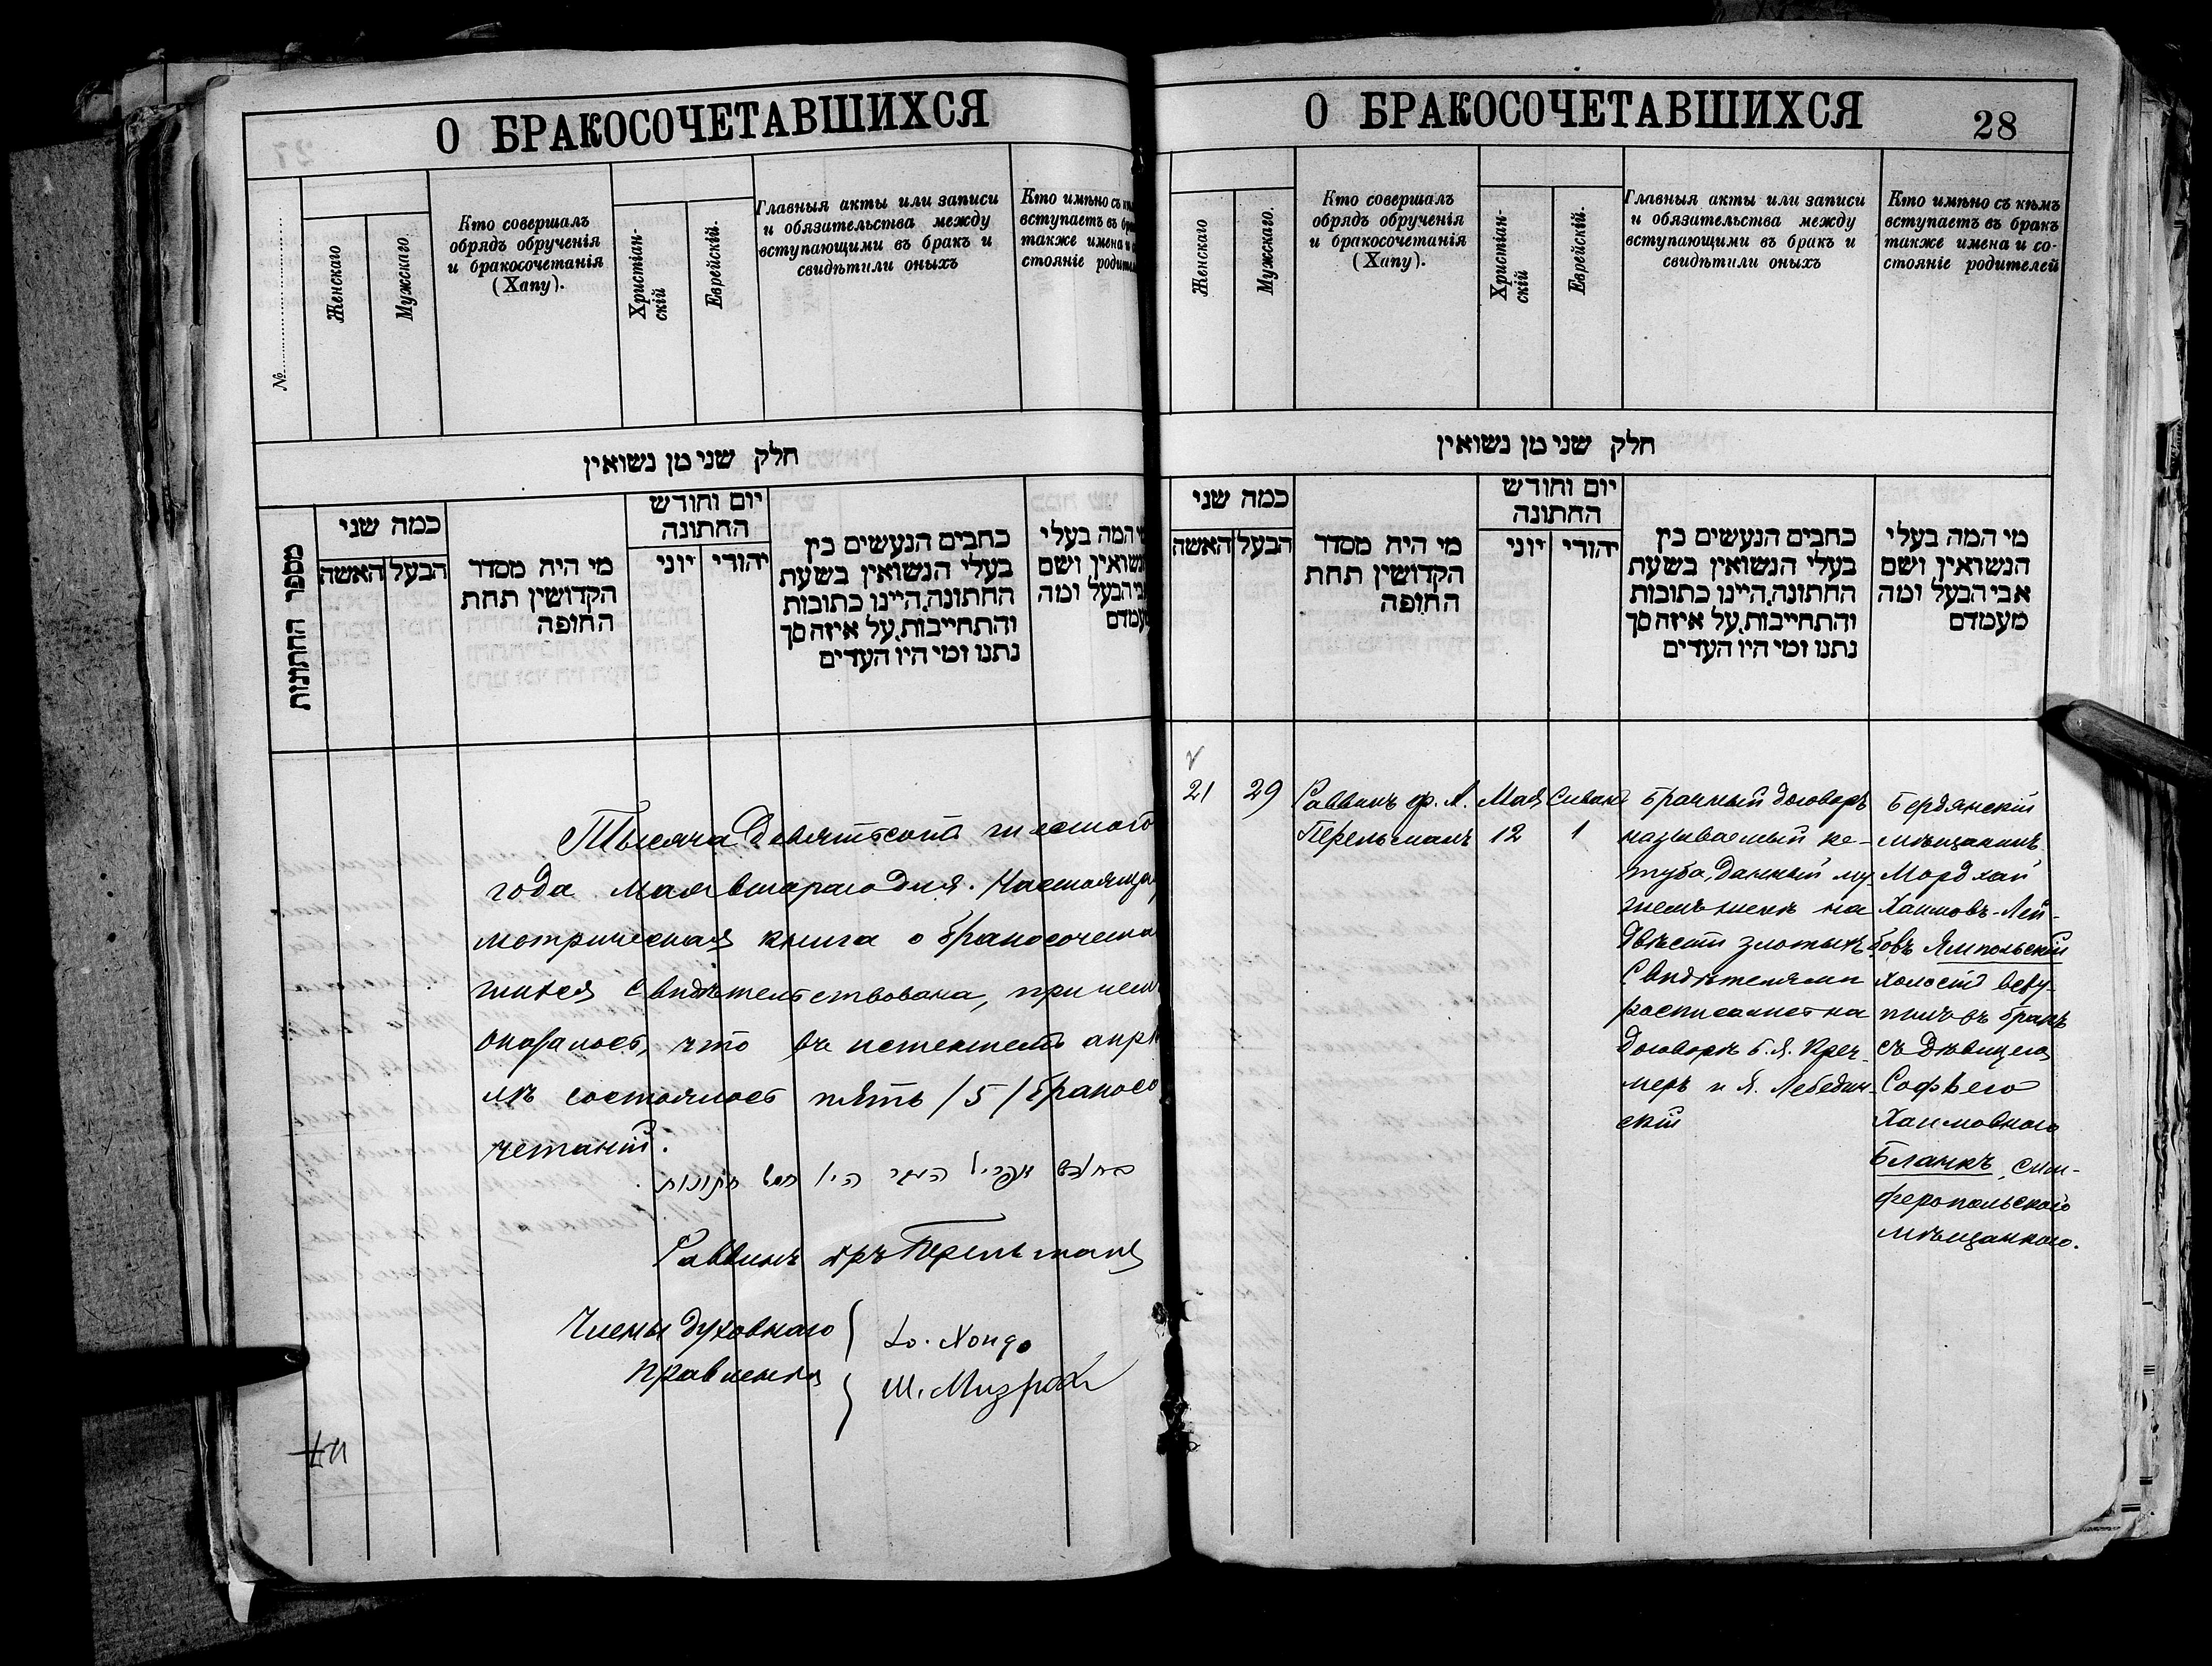 О БРАКОСОЧЕТАВШИХСЯ
№
Женскаго
Мужскаго
Кто совершалъ
обрядъ обрученія
и бракосочетанія
(Хапу).
Христіан-
скій
Еврейскій.
Главныя акты или записи
и обязательства между
вступающими въ бракъ и
свидѣтили оныхъ
Кто имѣно съ
вступаетъ въ
также имена и
стояніе
חלק שני מן נשואין
מספר החתונות
כמה שני
האשה
הבעל
מי היה מסדר
הקדושין תחת
החופה
יום וחודש
החתונה
יוני
יהודי
כתבים הנעשים בין
בעלי הנשואין בשעת
החתונה.היינו כתובות
והתחייבות.על איזה סך
נתנו ומי היו העדים
המה בעלי
ושם
הבעל ומה
Тысяча девятьсотъ шестого
года мая втораго дня. Настояща
метрическая книга о бракосочета
шихся свидѣтельствована, при чемъ
оказалось, что въ истекшемъ апрѣ
лѣ состоялось пять /5/ бракосо
четаній.
בחדש אפריל היו חמש חתונות
Раввинъ дръ Перельманъ
Члены духовнаго
правленія
Ш. Мизрах
О БРАКОСОЧЕТАВШИХСЯ
28
Женскаго
Мужскаго.
Кто совершалъ
обрядъ обрученія
и бракосочетанія
(Хапу).
Христіан-
скій
Еврейскій.
Главныя акты или записи
и обязательства между
вступающими въ бракъ и
свидѣтили оныхъ
Кто имѣно съ кѣмъ
вступаетъ въ бракъ
также имена и со-
стояніе родителей
חלק שני מן נשואין
כמה שני
האשה
הבעל
מי היה מסדר
הקדושין תחת
החופה
יום וחודש
החתונה
יוני
יהודי
כתבים הנעשים בין
בעלי הנשואין בשעת
החתונה.היינו כתובות
והתחייבות.על איזה סך
נתנו ומי היו העדים
מי המה בעלי
הנשואין ושם
אבי הבעל ומה
מעמדם
21
29
Раввинъ ф. А.
Перельманъ
Мая
12
Сивана
1
Брачный договоръ
называемый ке-
туба, данный му-
жемъ женѣ на
двѣсти злотыхъ
Свидѣтелями
росписались на
договорѣ Б. Я. Креч-
меръ и Я. Лебедин-
скій
Бердянскій
мѣщанинъ
Мордхай
Хаимовъ-Лей-
бовъ Ямпольскій
холостъ всту-
пилъ въ бракъ
съ дѣвицею
Софьею
Хаимовною
Бланкъ, сим-
феропольскою
мѣщанкою.